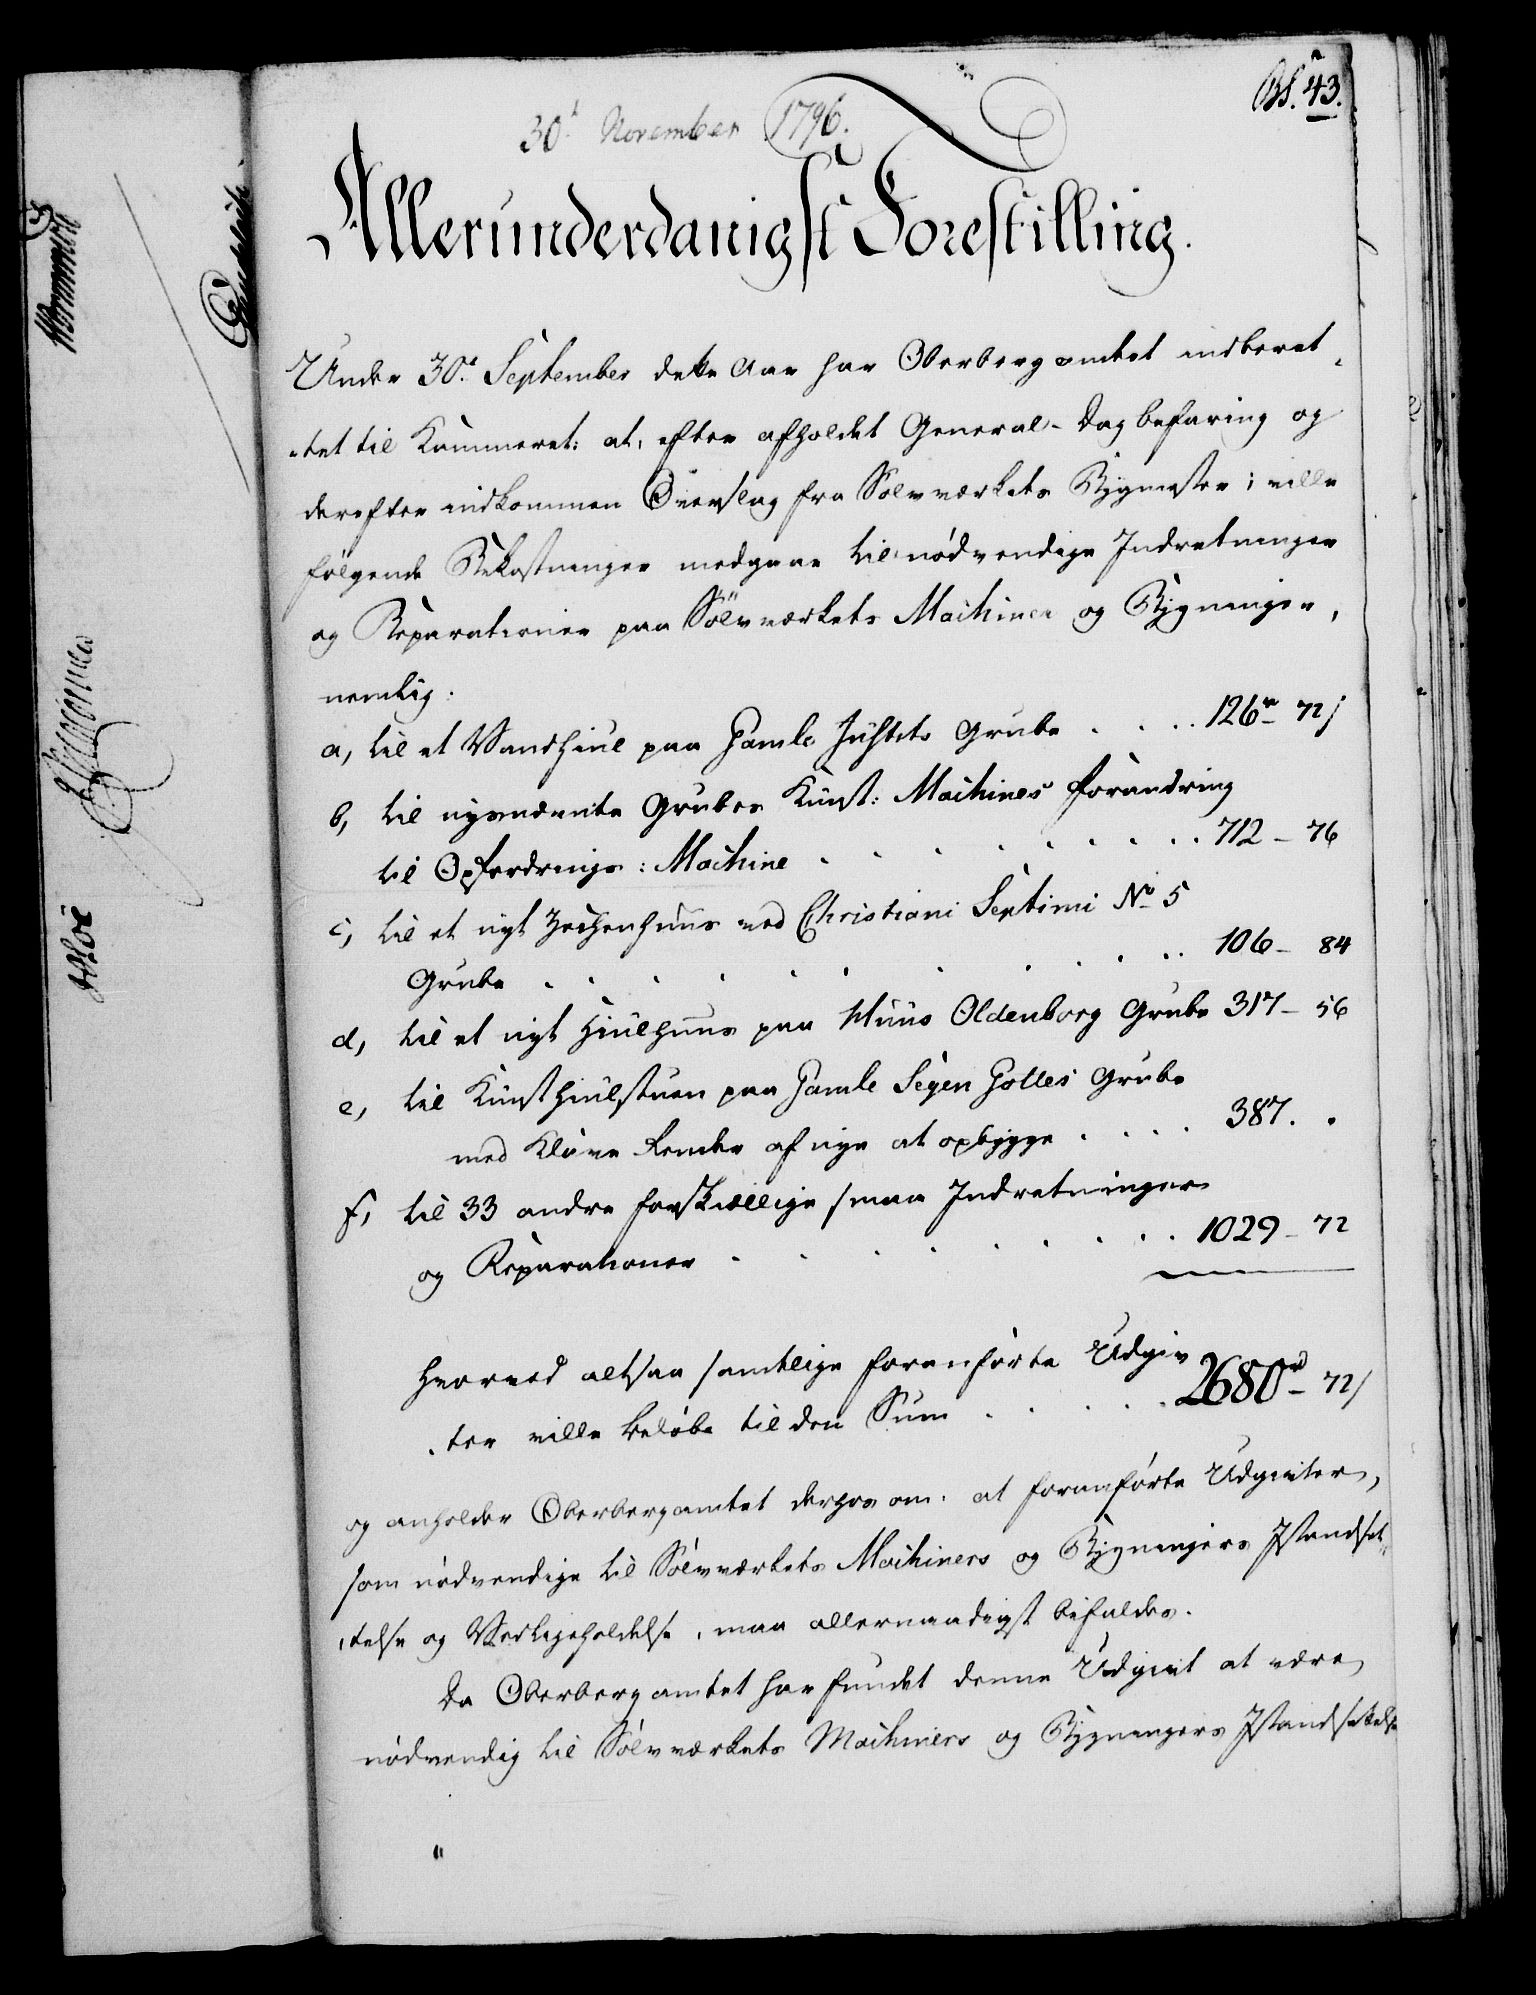 Bl. 43.
30t November 1796.
Allerunderdanigst Forestilling.
Under 30t September dette Aar har Oberbergamtet indberet-
tet til Kammeret: at, efter afholdet General-Dagbefaring og
derefter indkommen Overslag fra Sølvværkets Bygmester; ville
følgende Bekostninger medgaae til nødvendige Indretninger
og Reparationer paa Sølvværkets Machiner og Bygninger,
nemlig:
a, til et Vandhiul paa Gamle Justits Grube . . . 126r - 72ſ
b, til nysnævnte Grubes Kunst: Machines Forandring
til Opfordrings: Machine . . . . . . . . 712 - 76
c, til et nyt Zechenhuus ved Christiani Septimi No 5
Grube . . . . . . . . . 106 - 84
d, til et nyt Hiulhuus paa Huus Oldenborg Grube 317 - 56
e, til Kunsthiulstuen paa Gamle Segen Gottes Grube
med Render af nye at opbygge . . . . 387. .
f, til 33 andre forskiællige smaa Indretninger
og Reparationer . . . . . . . . 1029 - 72
Hvorved altsaa samtlige foranførte Udgiv
ter ville beløbe til den Sum . . . . . 2680r - 72ſ
og anholder Oberbergamtet derhos om: at foranførte Udgivter,
som nødvendige til Sølvværkets Machiners og Bygningers Istandsæt-
telse og Vedligeholdelse, maa allernaadigst bifaldes.
Da Oberbergamtet har fundet denne Udgivt at være
nødvendig til Sølvværkets Machiners og Bygningers Istandsættelse